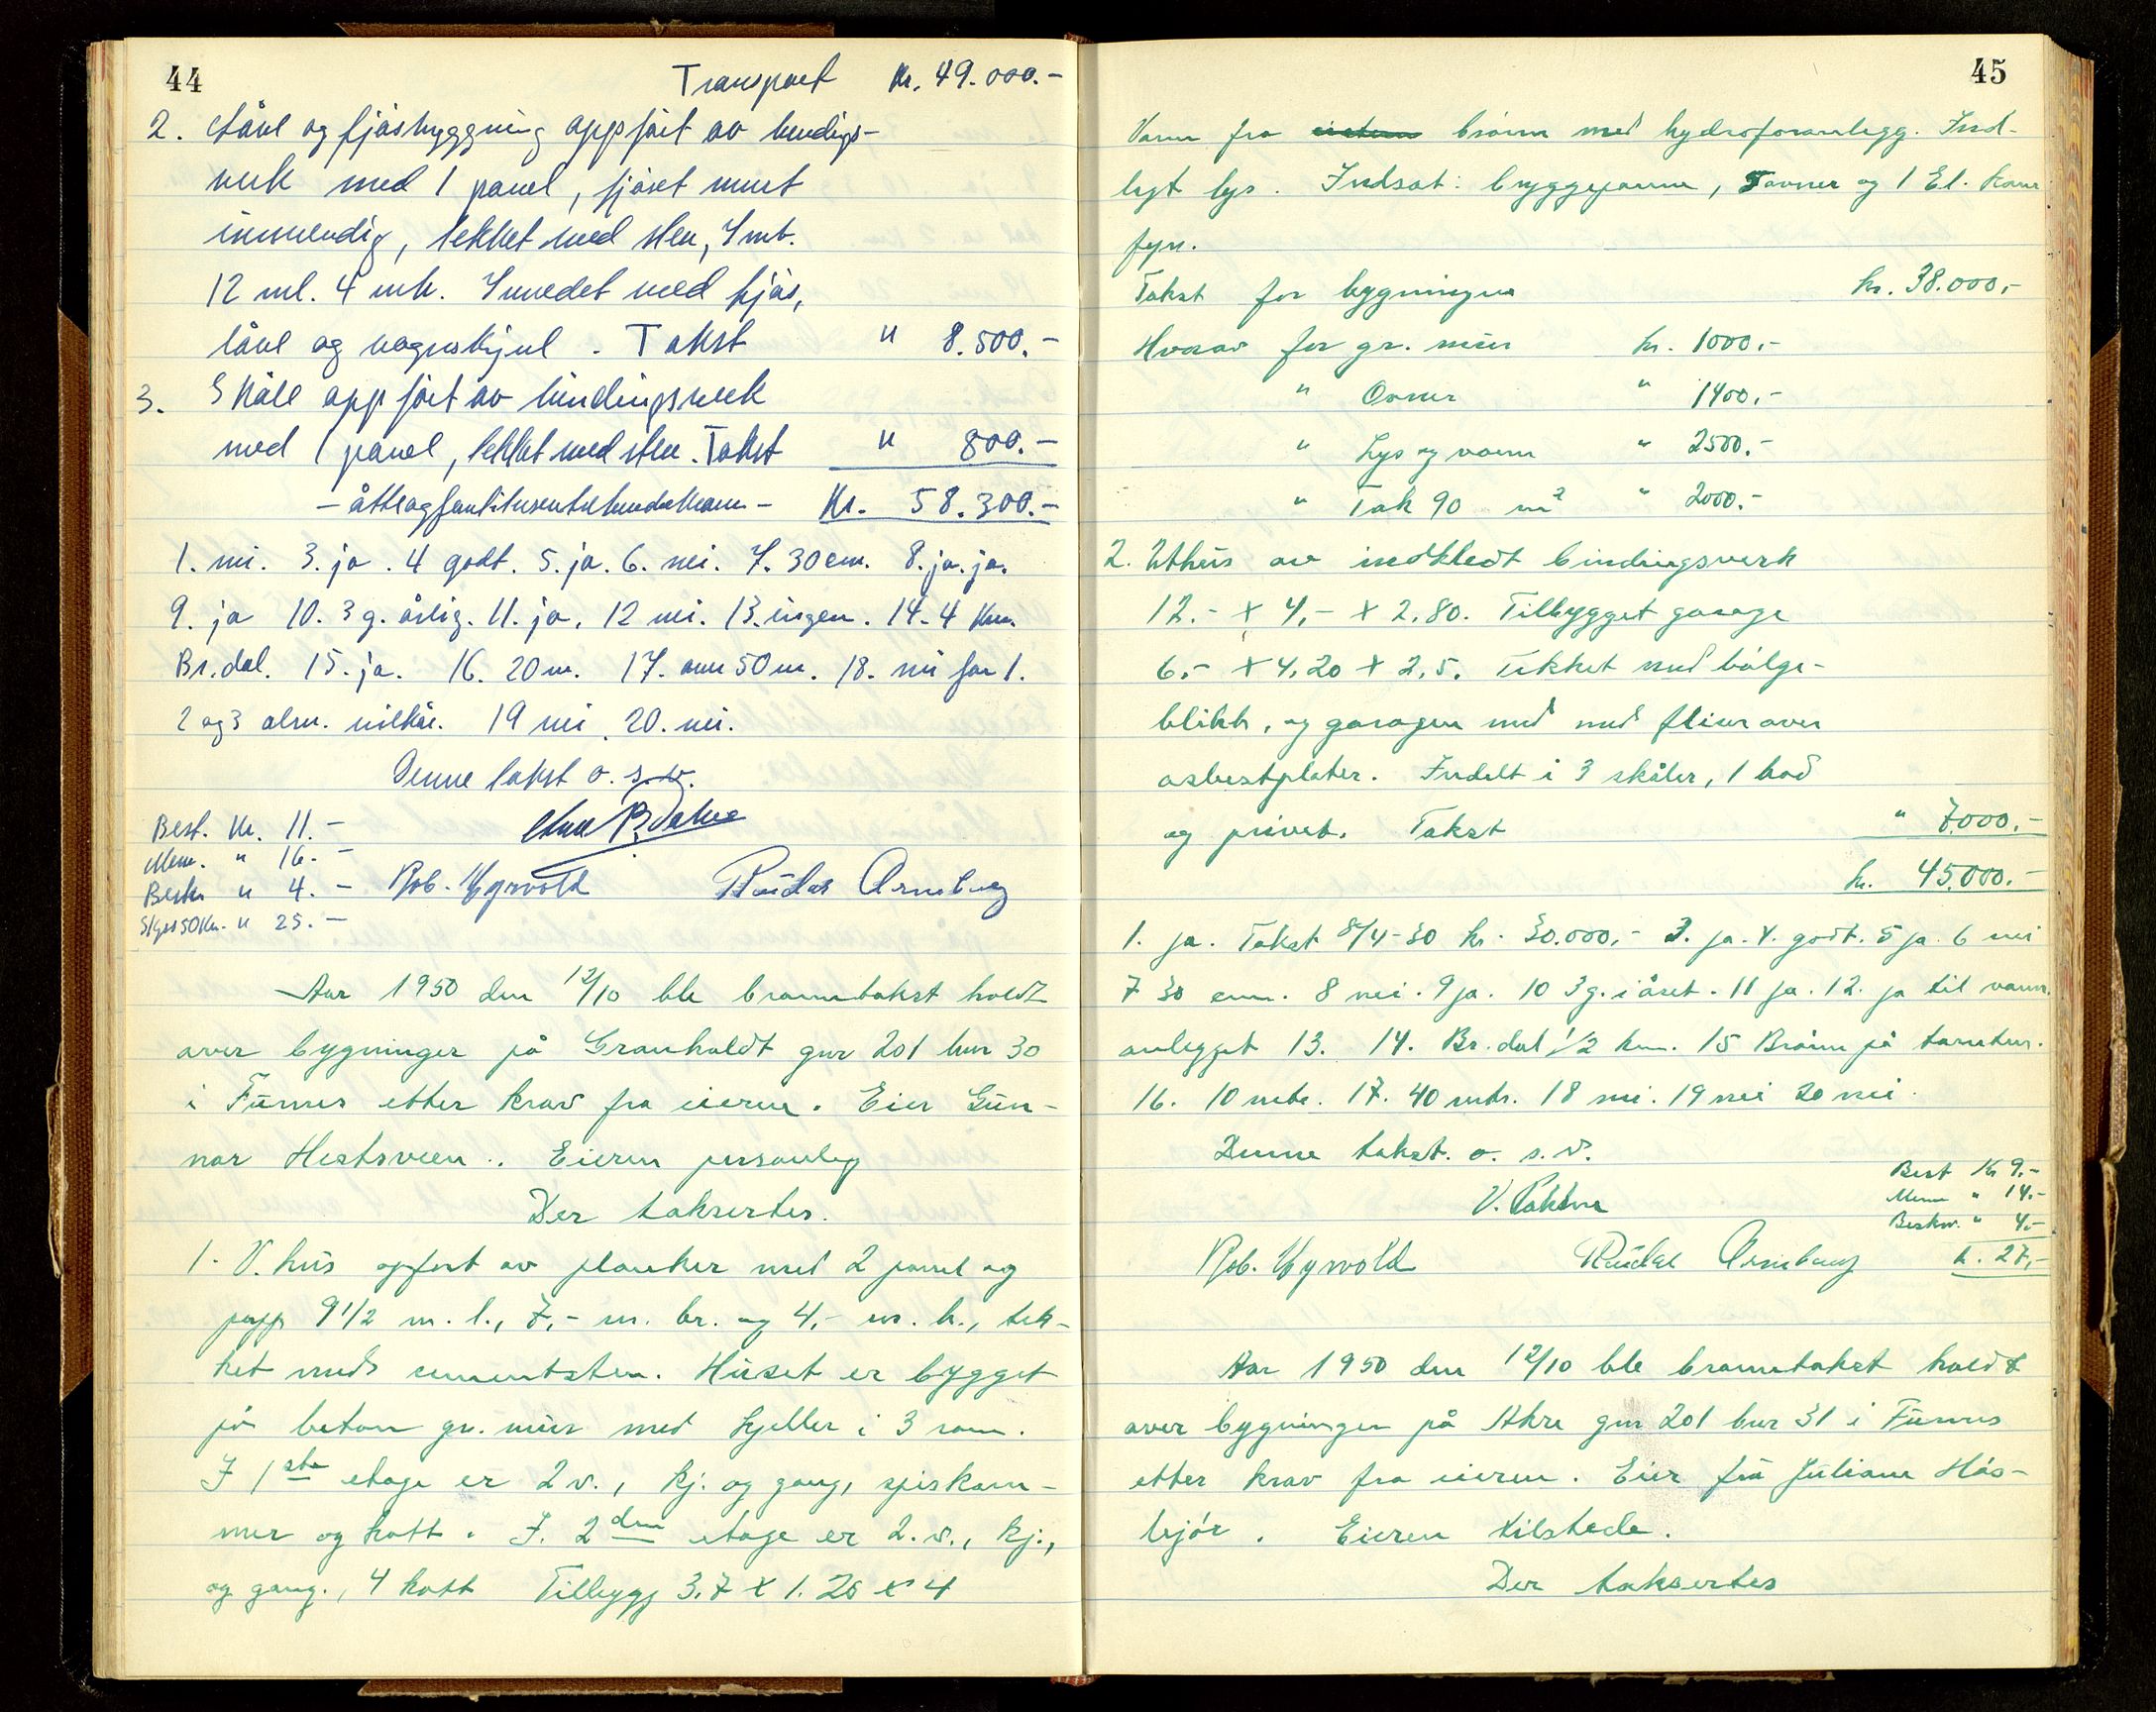 44
Transport Kr. 49.000.-
2. Låve og fjøsbyggning oppført av bindings-
verk med 1 panel, fjøset muret
innvendig, tekket med sten, 7 mb.
12 ml. 4 mh. Innredet med fjøs,
låve og vognskjul. Takst " 8.500.-
3. Skåle oppført av bindingsverk
med 1 panel, tekket med sten. Takst " 800.-
- åtteogfemtitusentrehundrekroner - Kr. 58.300.-
1. nei. 3. ja. 4 godt. 5. ja. 6. nei. 7. 30 cm. 8. ja. ja.
9. ja 10. 3 g. årlig. 11. ja. 12 nei. 13. ingen. 14. 4 km.
Br.dal. 15. ja. 16. 20 m. 17. over 50 m. 18. nei for 1.
2 og 3 alm. vilkår. 19 nei. 20. nei.
Denne takst o. s. v.
Best. Kr. 11.-
Menn. " 16.-
Beskr " 4.-
Skyss 50 Km. " 25.-
Rob. Hyrvold Reidar Arneberg
Aar 1950 den 12/10 ble branntakst holdt
over bygninger på Granholdt gnr 201 bnr 30
i Furnes etter krav fra eieren. Eier Gun-
nar Hestsveen. Eieren personleg
Der taksertes.
1. V.hus opført av planker med 2 panel og
papp 9 1/2 m. l., 7,- m. br. og 4,- m. h., tek-
ket med sementsten. Huset er bygget
på beton gr. mur med kjeller i 3 rom.
I 1ste etage er 2 v., kj. og gang, spiskam-
mer og kott. I. 2den etage er 2. v., kj.,
og gang., 4 kott Tilbygg 3.7 x 1.20 x 4
45
Vann fra cistern brønn med hydroforanlegg. Ind-
lagt lys. Indsat: bryggepanne, 5 ovner og 1 El. kam
fyr.
Takst for bygningen kr. 38.000,-
Hvorav for gr. mur kr. 1000.-
" Ovner " 1400.-
" Lys og vann " 2500.-
" Tak 90 m² " 2000.-
2. Uthus av indkledt bindingsverk
12.- x 4,- x 2,80. Tilbygget garage
6,- x 4,20 x 2,5. tekket med bølge-
blikk, og garagen med med fliser over
asbestplater. Indelt i 3 skåler, 1 bod
og privet. Takst " 7000.-
kr. 45.000.-
1. ja. Takst 8/4-30 kr. 30.000,- 3. ja. 4. godt. 5 ja. 6 nei
7 30 cm. 8 nei. 9 ja. 10 3 g. i året. 11 ja. 12. ja til vann
anlegget 13. 14. Br.dal 1/2 km. 15 Brønn på tomten.
16. 10 mtr. 17. 40 mtr. 18 nei. 19 nei 20 nei.
Denne takst. o. s. v.
Best Kr 9,-
Menn " 14.-
Beskr. " 4,-
k. 27,-
Rob. Hyrvold Reidar Arneberg
Aar 1950 den 12/10 ble branntakst holdt
over bygninger på Akre gnr 201 bnr 31 i Furnes
etter krav fra eieren. Eier fru Juliane Hås-
bjør. Eieren tilstede.
Der taksertes